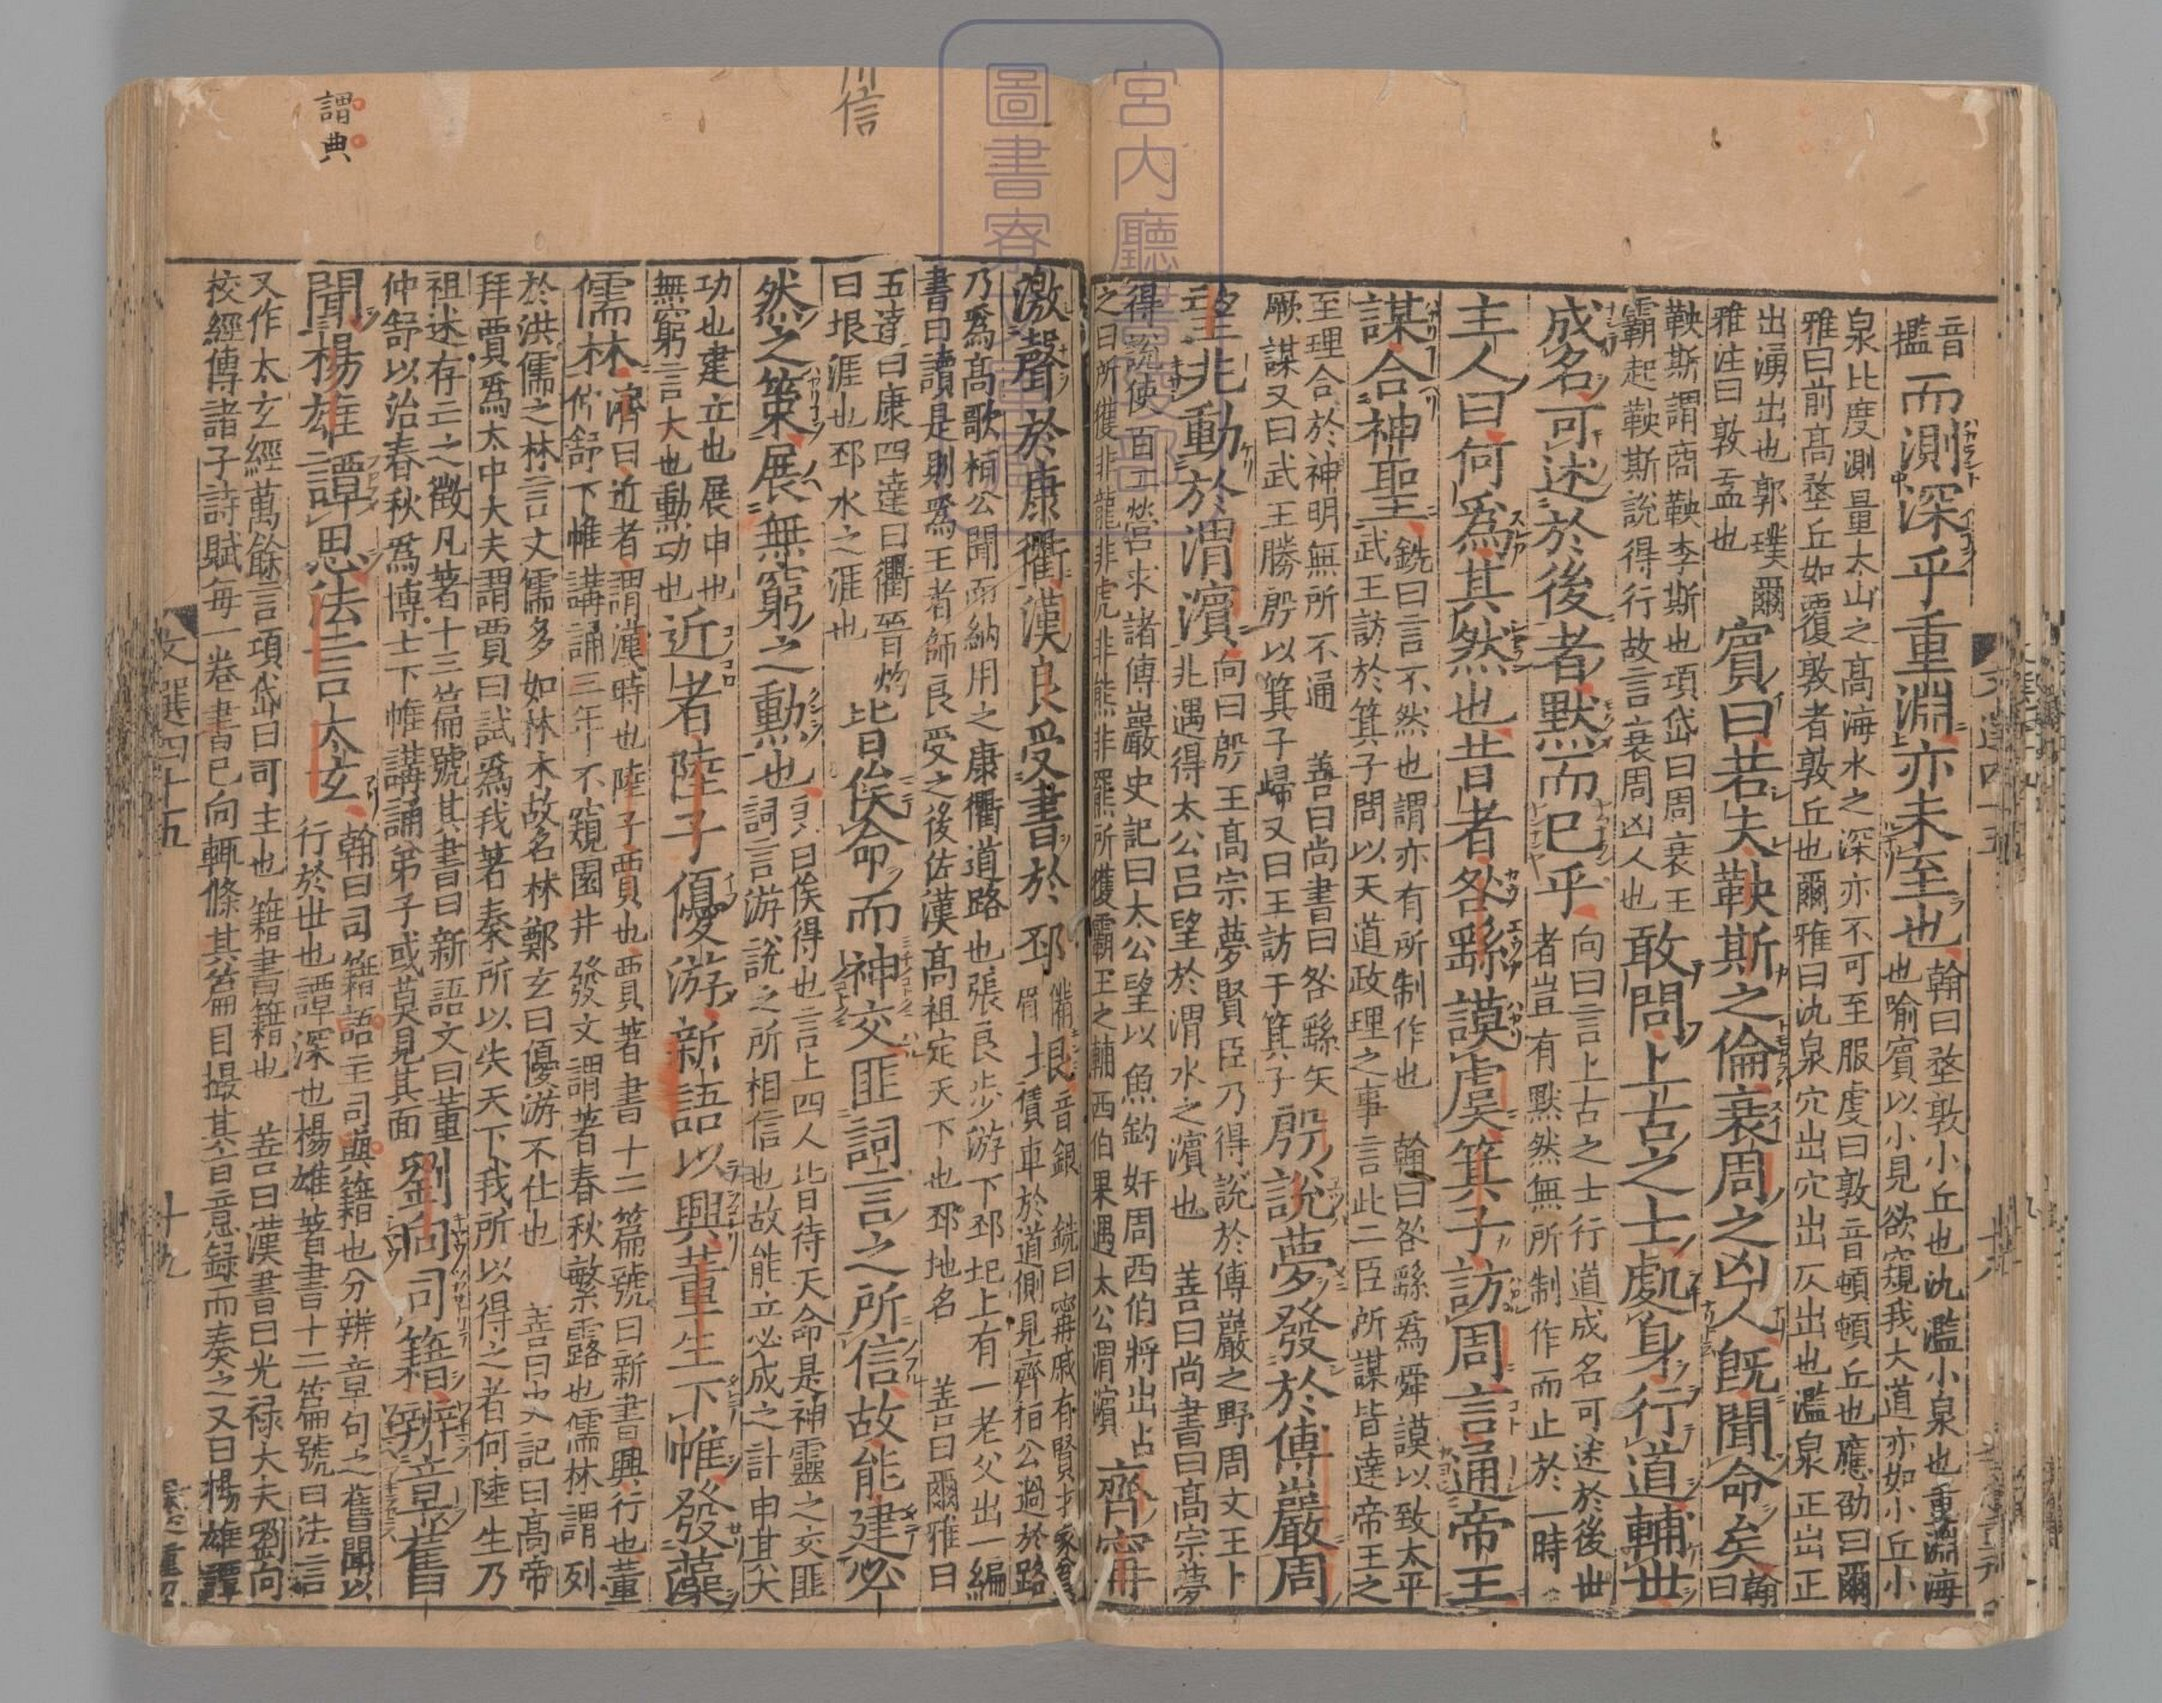 音
濫
而測深乎重淵亦未至也
翰曰堥敦小丘也氿濫小泉也重淵海
也喻賓以小見欲窺我大道亦如小丘小
泉比度測量太山之高海水之深亦不可至服虔曰敦音頓頓丘也應劭曰爾
雅曰前高堥丘如覆敦者敦丘也爾雅曰氿泉穴出穴出仄出也濫泉正出正
出湧出也郭璞爾
雅注曰敦盂也
賓曰若夫鞅斯之倫衰周之凶人既聞命矣
翰
曰
鞅斯謂商鞅李斯斯也項岱曰周衰王
霸起鞅斯說得行故言衰周凶人也
敢問上古之士處身行道輔世
成名可述於後者默而已乎
向曰言上古之士行道成名可述於後世
者豈有默然無所制作而止於一時
主人曰何爲其然也昔者咎繇謨虞箕子訪周言通帝王
謀合神聖
銑曰言不然也謂亦有所制作也 翰曰咎繇爲舜謨以致太平
武王訪於箕子問以天道政理之事言此二臣所謀皆達帝王之
至理合於神明無所不通 善曰尚書曰咎繇矢
厥謀又曰武王勝殷以箕子歸又曰王訪于箕子
殷說夢發於傅巖周
望兆動於渭濱
向曰殷王高宗夢賢臣乃得說於傅巖之野周文王卜
兆遇得太公呂望於渭水之濱也 善曰尚書曰高宗夢
得說使百工營求諸傅巖史記曰太公望以魚釣奸周西伯將出占
之曰所獲非龍非虎非熊非羆所獲霸王之輔西伯果遇太公渭濱
齊甯
激聲於康衢漢良受書於邳
備
眉
垠
音銀 銑曰甯戚有賢才家貧
賃車於道側見齊桓公過於路
乃爲高歌桓公聞而納用之康衢道路也張良步游下邳圯上有一老父出一編
書曰讀是則爲王者師良受之後佐漢高祖定天下也邳地名 善曰爾雅曰
五達曰康四達曰衢晉灼
曰垠涯也邳水之涯也
皆俟命而神交匪詞言之所信故能建必
然之策展無窮之勳也
良曰俟得也言上四人皆待天命是神靈之交匪
詞言游說之所相信也故能立必成之計申其大
功也建立也展申也
無窮言大也勳功也
近者陸子優游新語以興董生下帷發藻
儒林
濟曰近者謂漢時也陸子賈也賈著書十二篇號曰新書興行也董
仲舒下帷講誦三年不窺園井發文謂著春秋繁露也儒林謂列
於洪儒之林言文儒多如林木故名林鄭玄曰優游不仕也 善曰史記曰高帝
拜賈爲太中大夫謂賈曰試爲我著秦所以失天下我所以得之者何陸生乃
祖述存亡之徵凡著十三篇號其書曰新語文曰董
仲舒以治春秋爲博士下帷講誦弟子或莫見其面
劉向司籍辨章舊
聞楊雄譚思法言太玄
翰曰司籍語主司典籍也分辨章句之舊聞以
行於世也譚深也楊雄著書十二篇號曰法言
又作太玄經萬餘言項岱曰司主也籍書籍也 善曰漢書曰光祿大夫劉向
校經傳諸子詩賦每一卷書已向輒條其篇目撮其旨意録而奏之又曰楊雄譚
文選四十五
十九
謂典
信
宮内廳
圖書寮